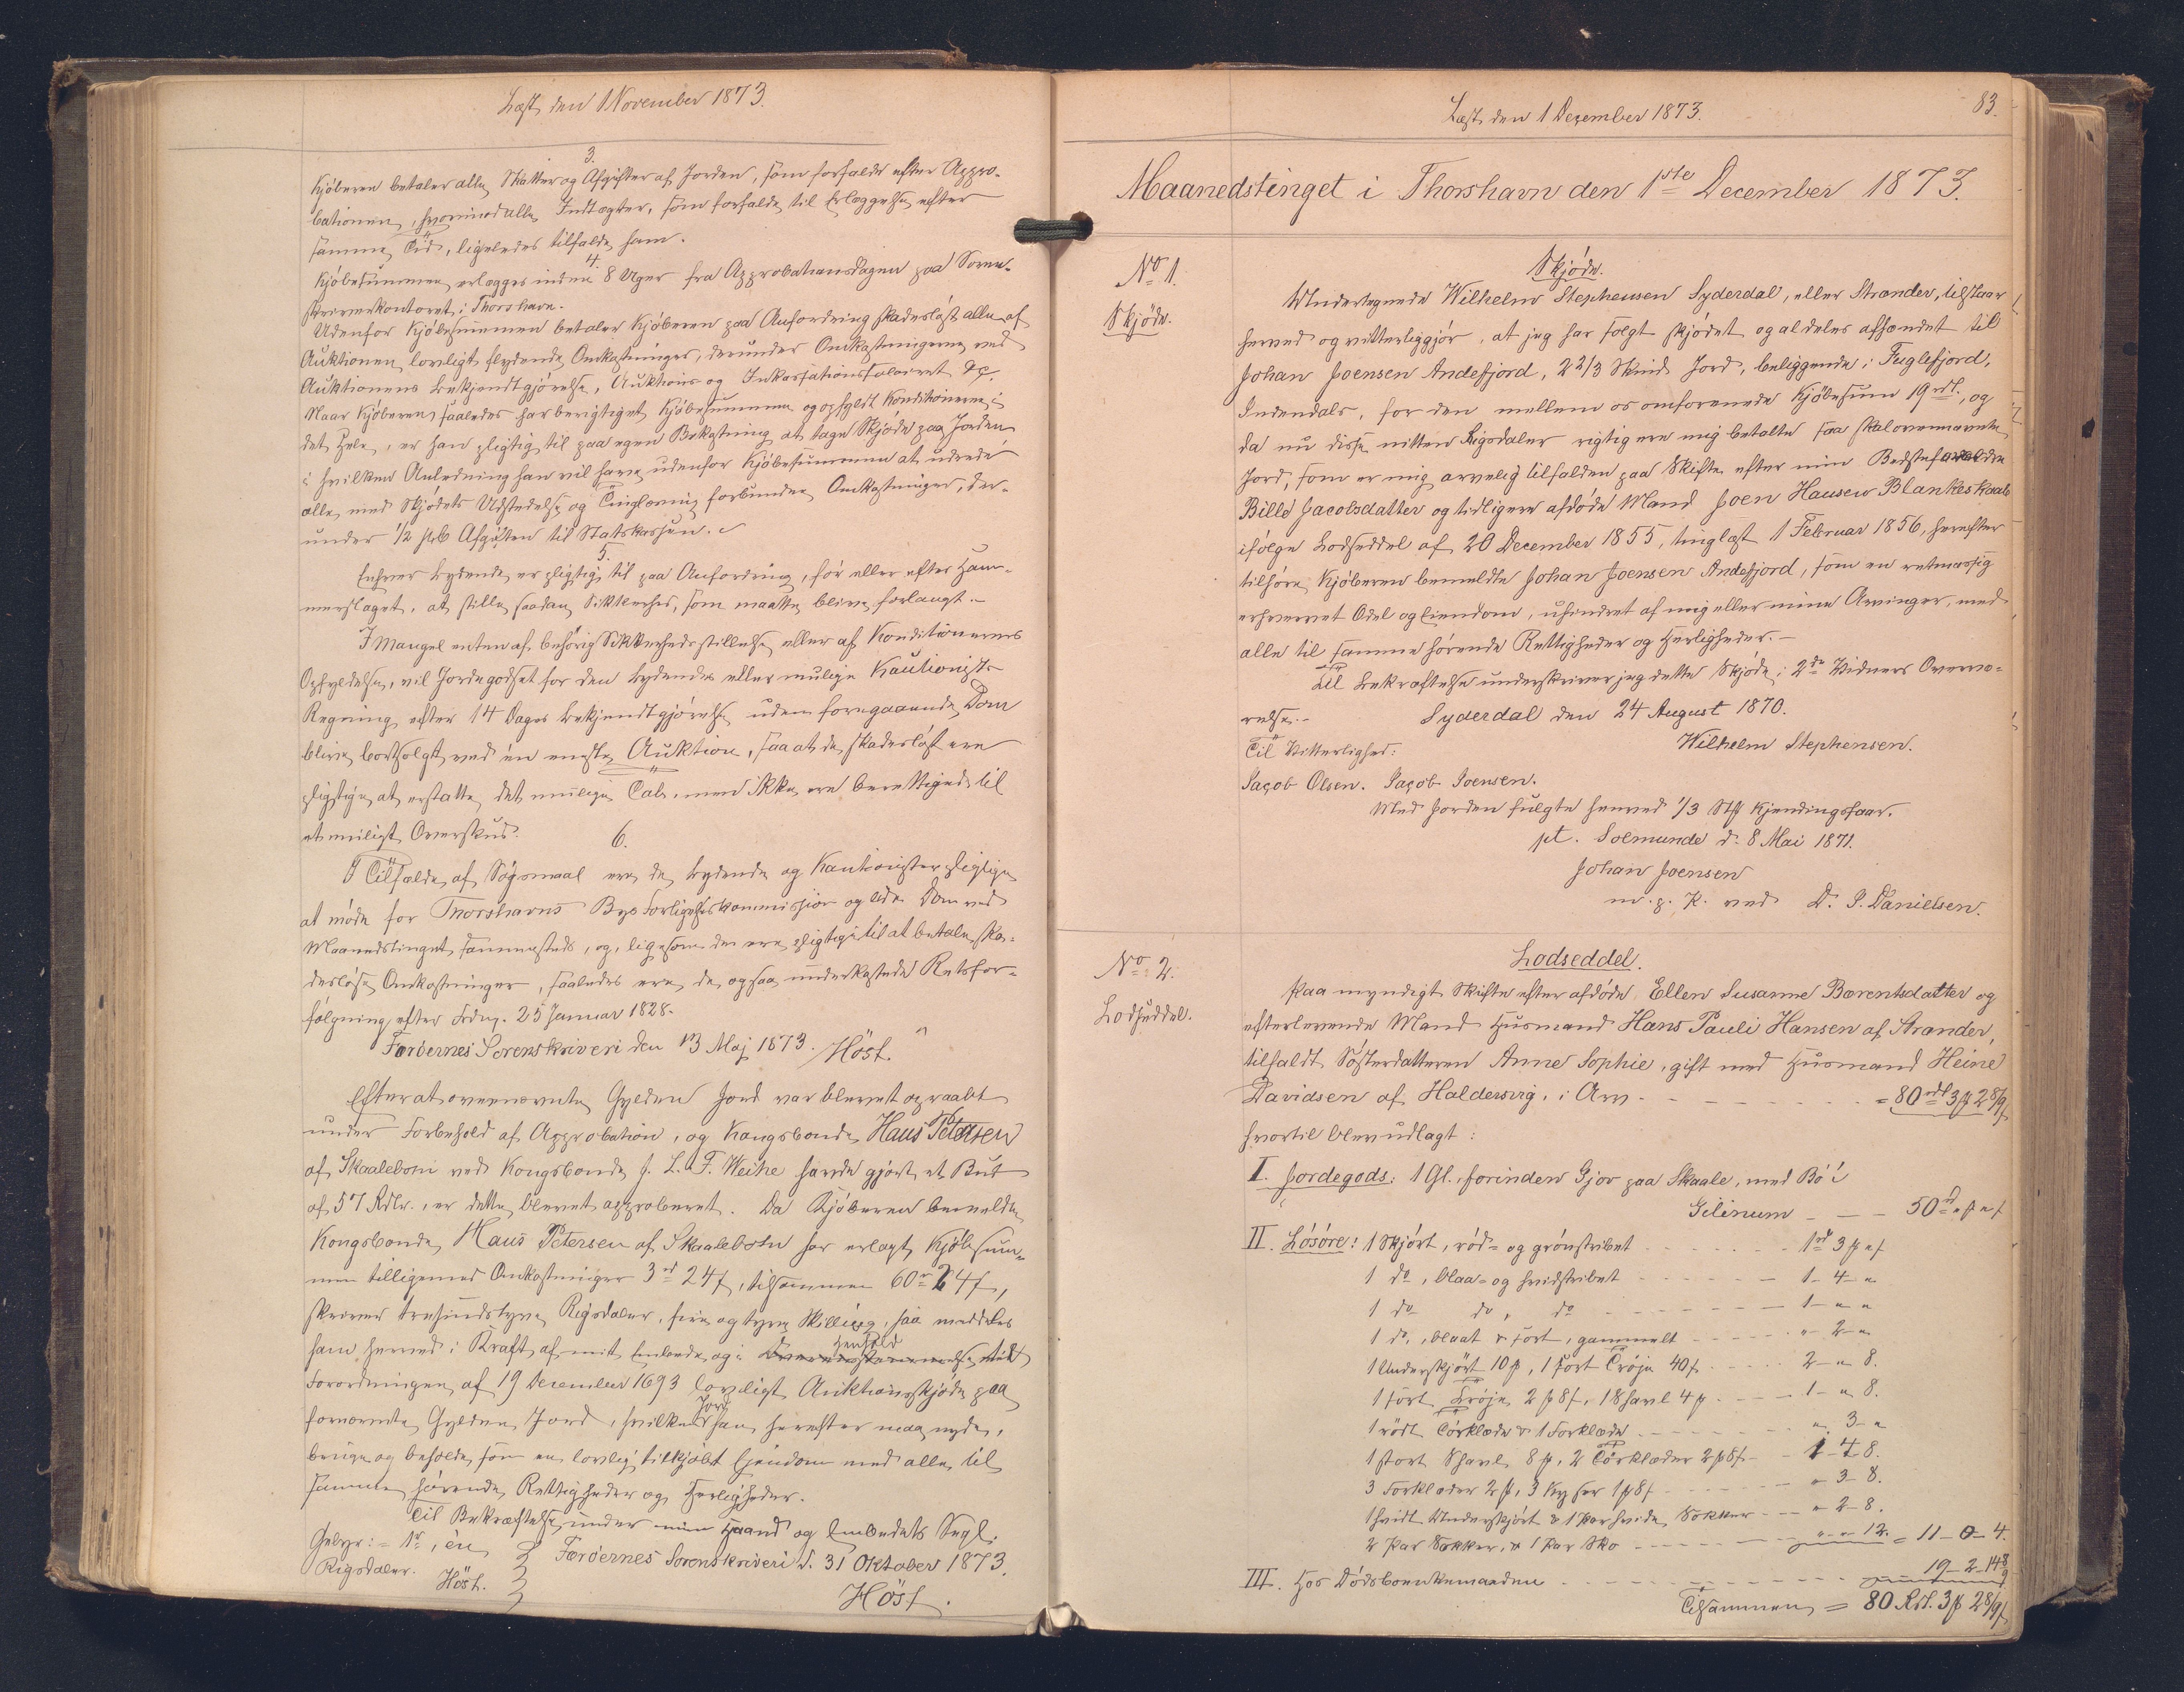 Læst den 1 November 1873.
3.
Kjøberen betaler alle Skatter og Afgifter af Jorden, som forfalde efter Appro-
bationen, hvorimod alle Indtægter, som forfalde til Erlæggelse efter
samme Tid, ligeledes tilfalde ham.
4.
Kjøbesummen erlægges inden 8 Uger fra Approbationsdagen paa Soren-
skriverkontoret i Thorshavn.
Udenfor Kjøbesummen betaler Kjøberen paa Anfordring skadesløst alle af
Auktionen lovligt flydende Omkostninger, derunder Omkostningerne ved
Auktionens Bekjendtgjørelse, Auktions- og Inkassationssalairet &c.
Naar Kjøberen saaledes har berigtiget Kjøbesummen og opfyldt Konditionerne i
det Hele, er han pligtig til paa egen Bekostning at tage Skjøde paa Jorden
i hvilken Anledning han vil have udenfor Kjøbesummen at udrede
alle med Skjødets Udstedelse og Tinglæsning forbundne Omkostninger, der-
under ½ pCt Afgiften til Statskassen.
5.
Enhver Bydende er pligtig til paa Anfordring, før eller efter Ham-
merslaget, at stille saadan Sikkerhed, som maatte blive forlangt.-
I Mangel enten af behørig Sikkerhedsstillelse eller af Konditionernes
Opfyldelse, vil Jordegodset for den Bydendes eller mulige Kautionists
Regning efter 14 Dages Bekjendtgjørelse uden foregaaende Dom
blive bortsolgt ved én eneste Auktion, saa at de skadesløst ere
pligtige at erstatte det mulige Tab, men ikke ere berettigede til
et muligt Overskud.
6.
I Tilfælde af Søgsmaal ere de Bydende og Kautionister pligtige
at møde for Thorshavns Byes Forligelseskommission og lide Dom ved
Maanedstinget sammesteds, og, ligesom de ere pligtige til at betale ska-
desløse Omkostninger, saaledes ere de ogsaa underkastede Retsfor-
følgning efter Frdng. 25 Januar 1828.
Færøernes Sorenskriveri den 13 Maj 1873. Høst.
Efterat ovennævnte Gylden Jord var blevet opraabt
under Forbehold af Approbation, og Kongsbonde Hans Petersen
af Skaalebotn ved Kongsbonde J. L. F. Weihe havde gjort et Bud
af 57 Rdlr., er dette blevet approberet. Da Kjøberen bemeldte
Kongsbonde Hans Petersen af Skaalebotn har erlagt Kjøbesum-
men tilligemed Omkostninger 3 rd 24 f, tilsammen 60 r 24 f,
skriver tresindstyve Rigsdaler, fire og tyve Skilling, saa meddeles
ham herved i Kraft af mit Embede og i Henhold til
Forordningen af 19 December 1693 lovligt Auktionsskjøde paa
fornævnte Gylden Jord, hvilken Jord han herefter maa nyde,
bruge og beholde som en lovlig tilkjøbt Ejendom med alle til
samme hørende Rettigheder og Herligheder.
Til Bekræftelse under min Haand og Embedets Segl.
Gebyr: = 1 r, én
Rigsdaler.
Høst.
Færøernes Sorenskriveri d. 31 Oktober 1873.
Høst.
Læst den 1 December 1873.
83.
Maanedstinget i Thorshavn den 1ste December 1873.
No 1.
Skjøde.
Skjøde.
Undertegnede Wilhelm Stephensen Syderdal, eller Strander, tilstaar
herved og vitterliggjør, at jeg har solgt skjødet og aldeles afhændet til
Johan Joensen Andefjord, 2 2/3 Skind Jord, beliggende i Fuglefjord,
Indendals, for den mellem os omforenede Kjøbesum 19 rdl., og
da nu disse nitten Rigsdaler rigtig ere mig betalte saa skal ovennævnte
Jord, som er mig arvelig tilfalden paa Skifte efter min Bedstefoældre
Bille Jacobsdatter og tidligere afdøde Mand Joen Hansen Blankeskaale
ifølge Lodseddel af 20 December 1855, tinglæst 1 Februar 1856, herefter
tilhøre Kjøberen bemeldte Johan Joensen Andefjord, som en retmæssig
erhvervet Odel og Eiendom, uhindret af mig eller mine Arvinger, med
alle til samme hørende Rettigheder og Herligheder.-
Til Bekræftelse underskriver jeg dette Skjøde i 2de Vidners Overvæ-
relse.-
Syderdal den 24 August 1870.
Wilhelm Stephensen.
Til Vitterlighed:
Jacob Olsen. Jacob Joensen.
Med Jorden fulgte herved 1/3 Stk Kjendingsfaar.
pt. Solmunde d. 8 Mai 1871.
Johan Joensen
m. p. P. ved D. J. Danielsen.
No 2.
Lodseddel.
Lodseddel.
Paa myndigt Skifte efter afdøde Ellen Susanne Bærentsdatter og
efterlevende Mand Husmand Hans Pauli Hansen af Strander,
tilfaldt Søsterdatteren Anne Sophie, gift med Husmand Heine
Davidsen af Haldersvig, i Arv - - - = 80 rdl 3 ß 2 8/9
hvortil blev udlagt:
I. Jordegods: 1 Gl. forinden Gjov paa Skaale, med Bö i
Gilinum - - - 50 rd " ß " f
II. Løsøre: 1 Skjørt, rød- og grønstribet - - - 1 rd 3 ß " f
1 do, blaa- og hvidstribet - - - 1 - 4 - "
1 do do, do - - - 1 - " "
1 do, blaat & sort, gammelt - - - " - 2 - "
1 Underskjørt 10 ß, 1 sort Trøje 40 f - - - 2 - " 8.
1 sort Trøje 2 ß 8 f, 1 Shavl 4 ß - - - 1 - " 8.
1 rødt Tørklæde & 1 Forklæde - - - " 3 - "
1 stort Shavl 8 ß, 2 Tørklæder 2 ß 8 f - - 1 - 4 - 8.
3 Forklæder 2 ß, 3 Kyser 1 ß 8 f - - - " - 3 - 8.
1 hvidt Underskjørt & 1 Par hvide Sokker - - - " - 2 - 8.
2 Par Sokker, & 1 Par Sko - - - " - " 12. = 11 - 0 - 4.
III. Hos Dødsboenkemanden - - - 19 - 2 - 14 8/9
Tilsammen = 80 Rdl. 3 ß 2 8/9 f